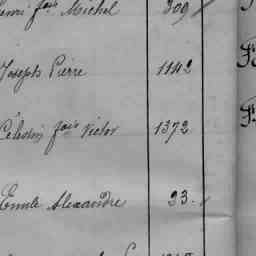 Henri fois Michel 809
Joseph Pierre 1142
Célestin fois Victor 1372
Emile Alexandre 23.